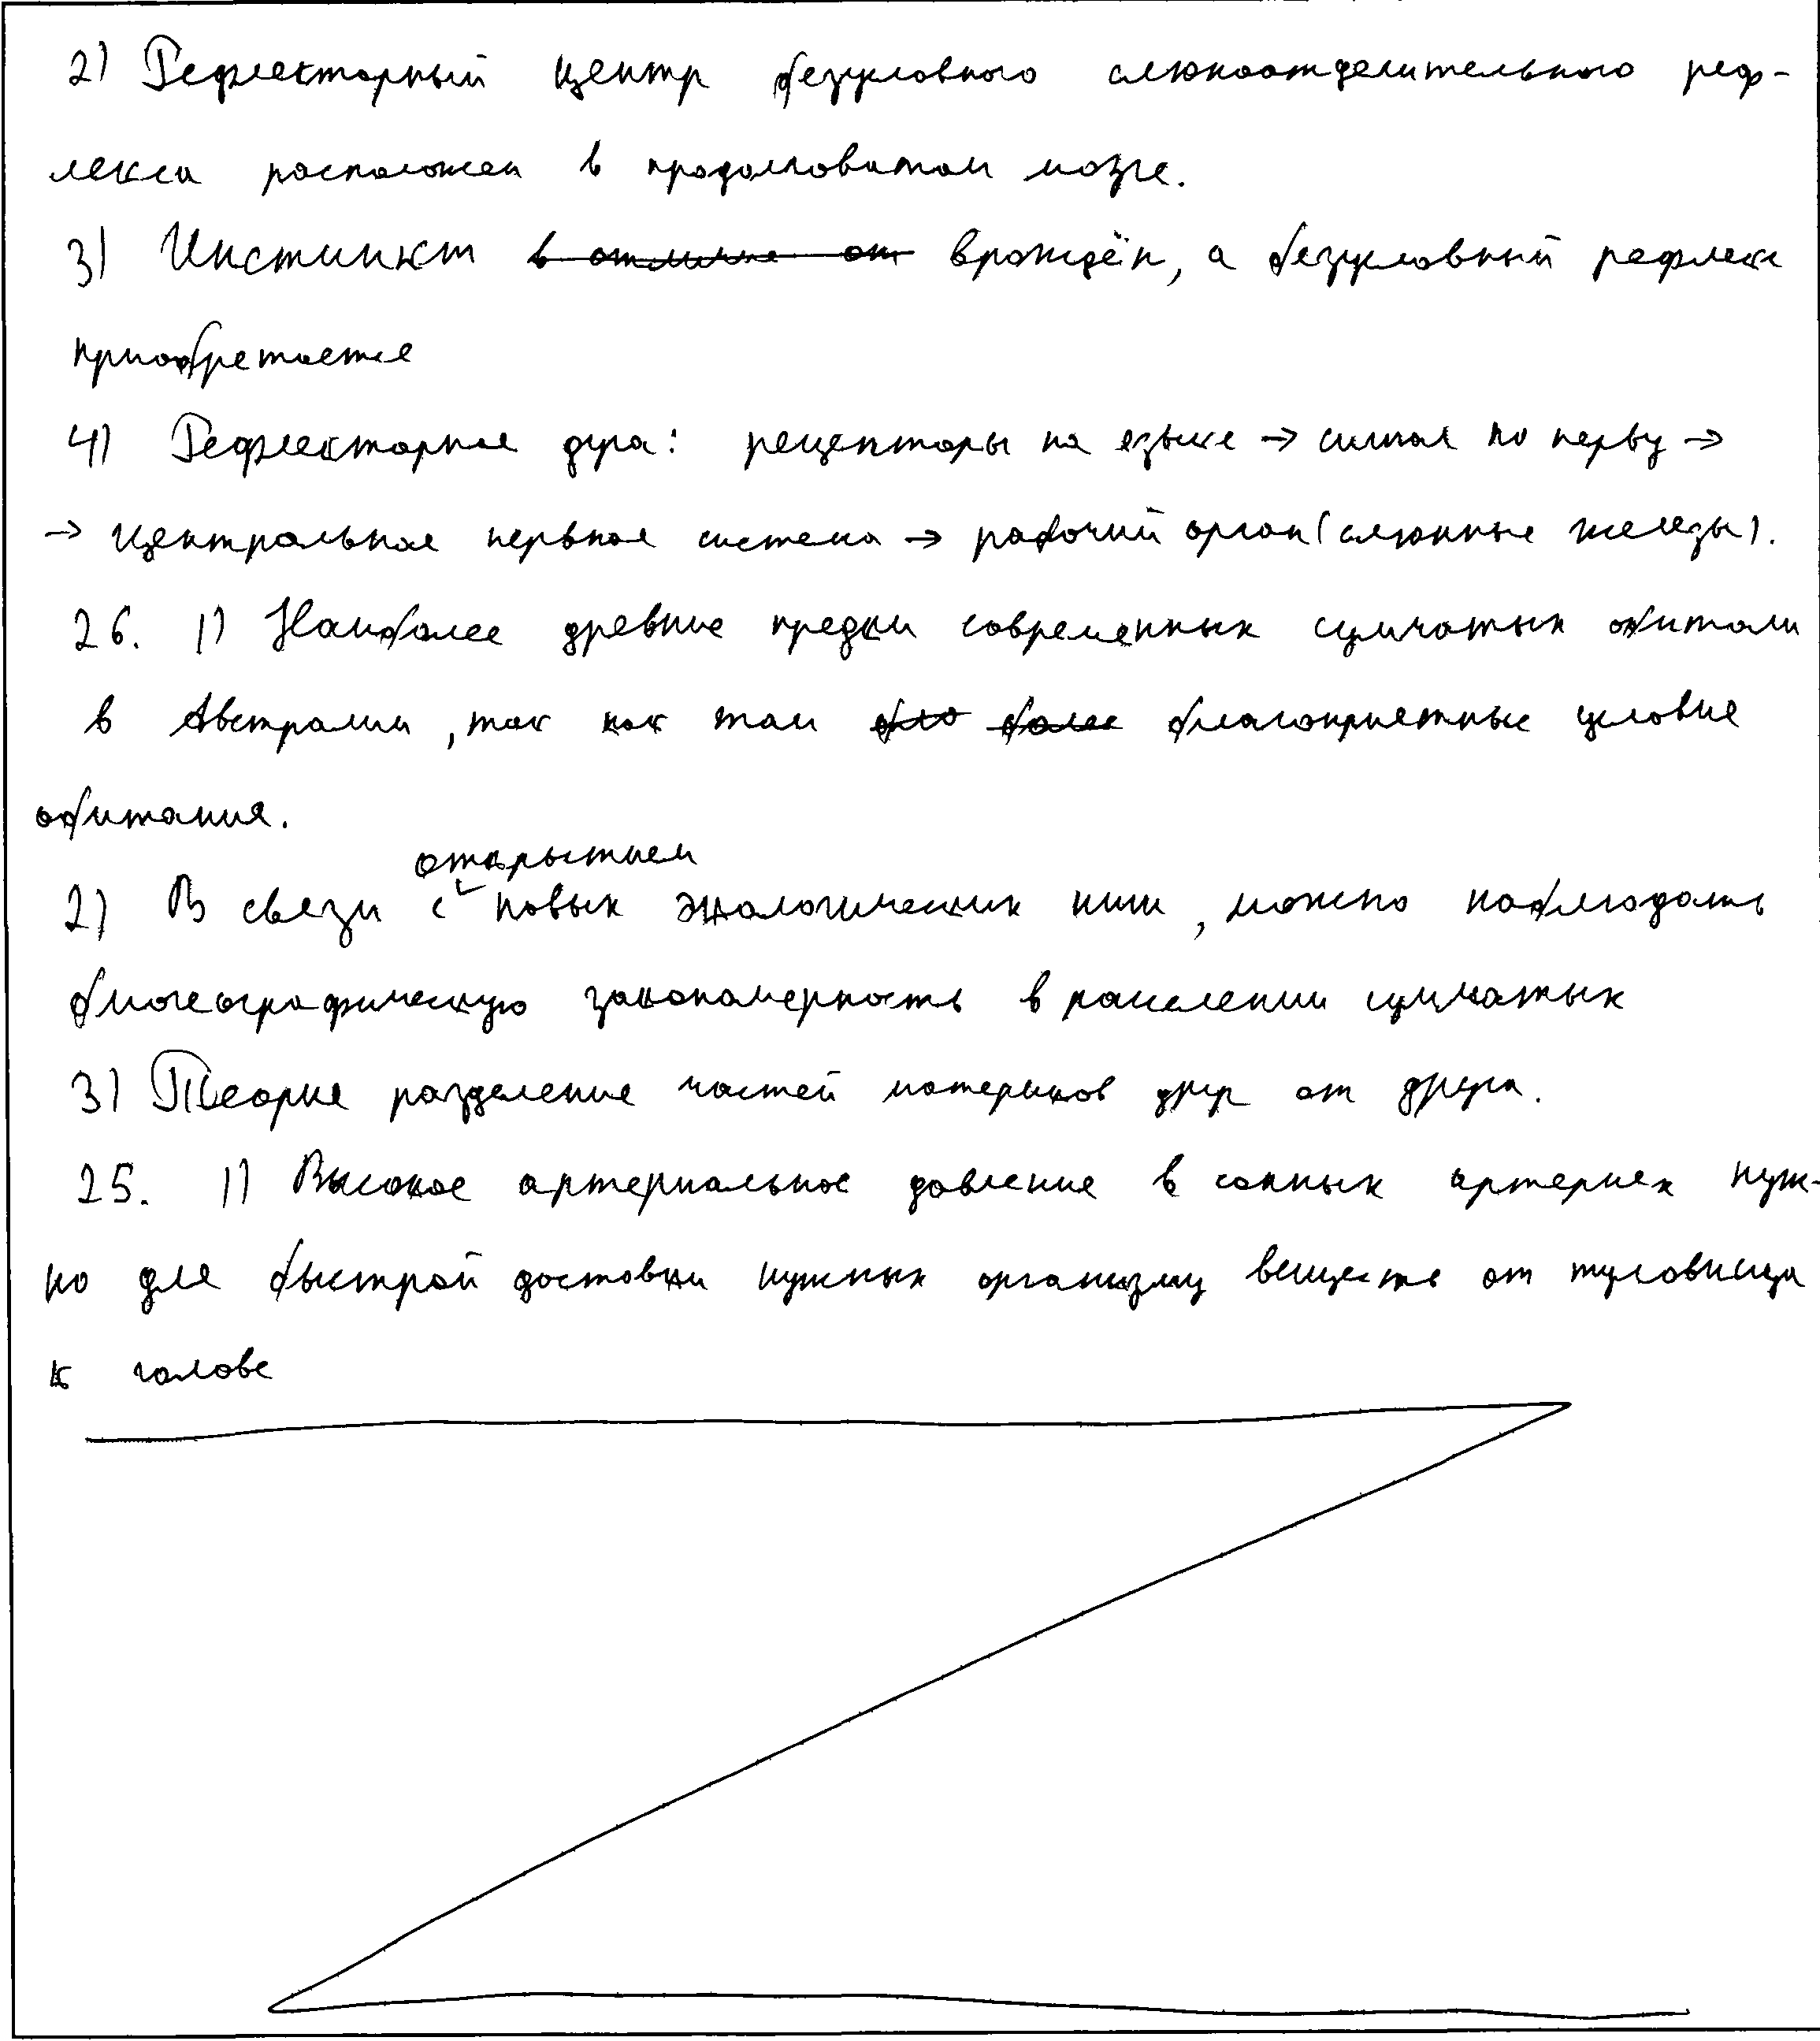 2) Рефлекторный центр безусловного слюноотделительного реф-
лекса расположен в продолговатом мозге.
3) Инстинкт в отличие от врождён, а безусловный рефлекс
приобретается
4) Рефлекторная дуга: рецепторы на языке → сигнал по нерву →
→ центральная нервная система → рабочий орган (слюнные железы).
26. 1) Наиболее древние предки современных сумчатых обитали
в Австралии, так как там было более благоприятные условия
обитания.
открытием
2) В связи с новых экологических ниш, можно наблюдать
биогеографическую закономерность в расселении сумчатых
3) Теория разделения частей материков друг от друга.
25. 1) Высокое артериальное давление в сонных артериях нуж-
но для быстрой доставки нужных организму веществ от туловища
к голове